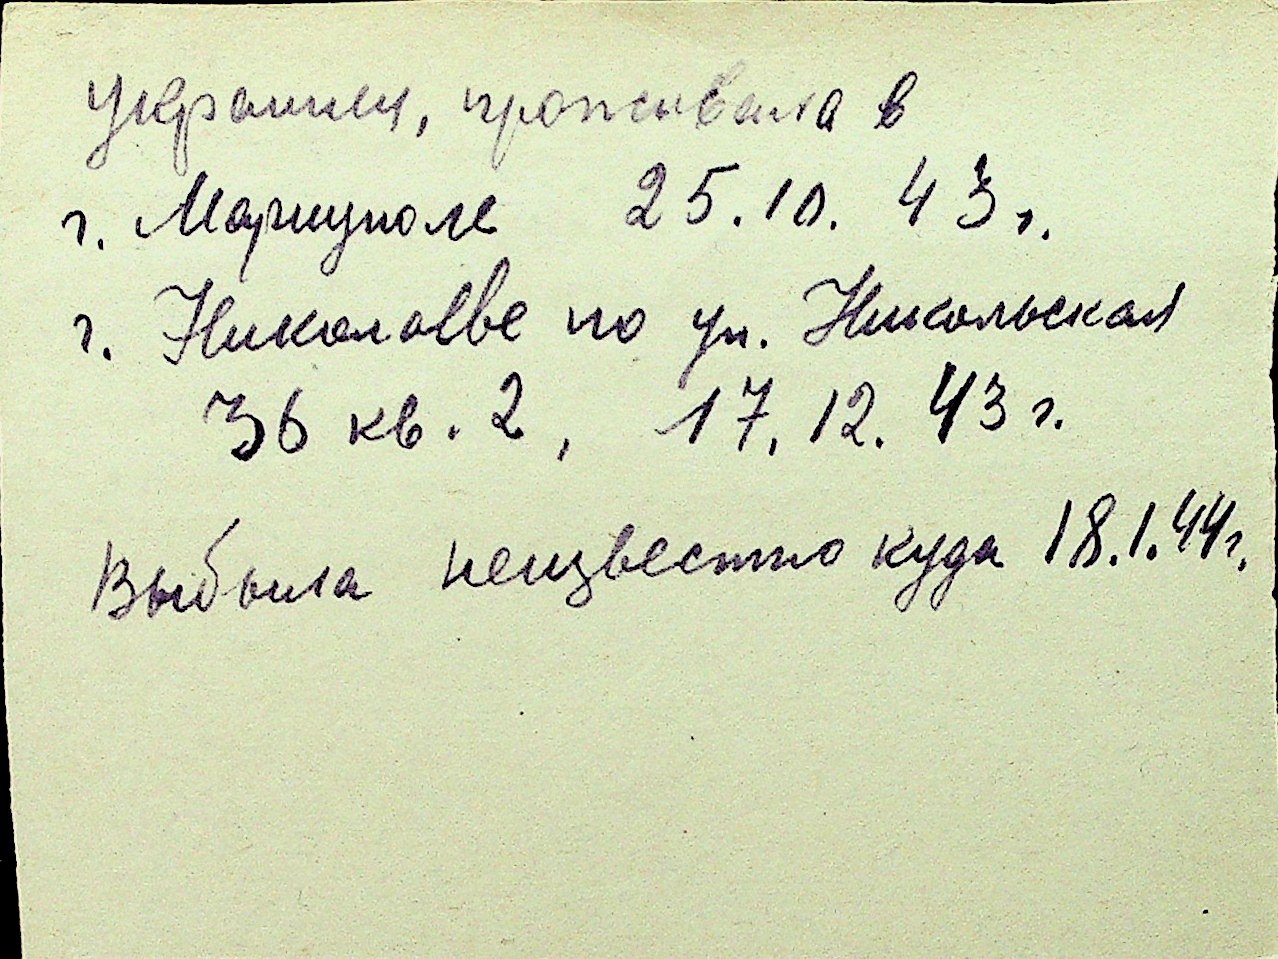 украинец, проживала в
г. Мариуполе 25.10.43 г.
г. Николаеве по ул. Никольская
36 кв. 2, 17.12.43 г.
Выбыла неизвестно куда 18.1.44 г.